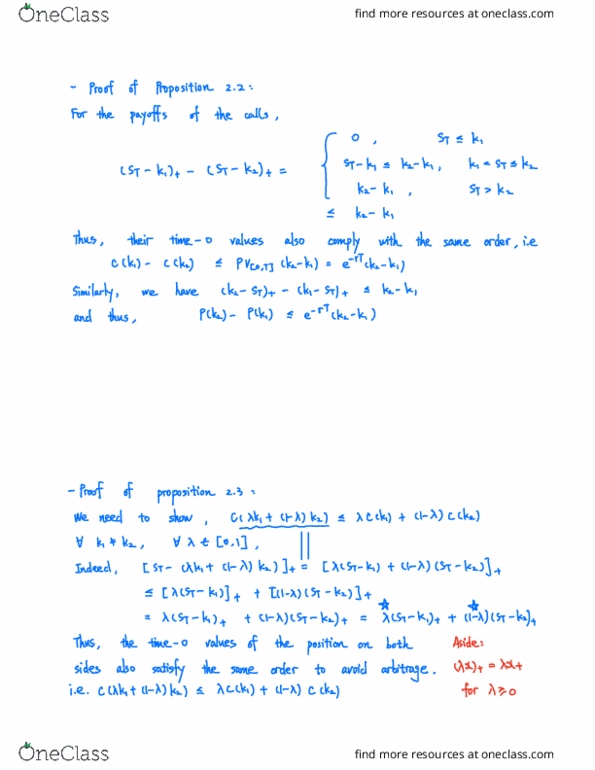 OneClass
find more resources at oneclass.com
- Proof of Proposition 2.2:
For the payoffs of the calls,
0 , ST ≤ k1
(ST - k1)+ - (ST - k2)+ = { ST - k1 ≤ k2 - k1, k1 < ST ≤ k2
k2 - k1 , ST > k2
≤ k2 - k1
Thus, their time-0 values also comply with the same order, i.e
C(k1) - C(k2) ≤ PV[0,T] (k2-k1) = e^-rT (k2-k1)
Similarly, we have (k2-ST)+ - (k1-ST)+ ≤ k2-k1
and thus, P(k2) - P(k1) ≤ e^-rT (k2-k1)
- Proof of proposition 2.3:
We need to show, C(λk1 + (1-λ) k2) ≤ λC(k1) + (1-λ) C(k2)
∀ k1 ≠ k2, ∀ λ ∈ [0,1],
Indeed, [ST - (λk1 + (1-λ) k2)]+ = [λ(ST-k1) + (1-λ)(ST-k2)]+
≤ [λ(ST-k1)]+ + [(1-λ)(ST-k2)]+
= λ(ST-k1)+ + (1-λ)(ST-k2)+ = λ(ST-k1)+ + (1-λ)(ST-k2)+
Thus, the time-0 values of the position on both
sides also satisfy the same order to avoid arbitrage.
i.e. C(λk1 + (1-λ) k2) ≤ λC(k1) + (1-λ) C(k2)
Aside:
(λx)+ = λx+
for λ≥0
OneClass
find more resources at oneclass.com